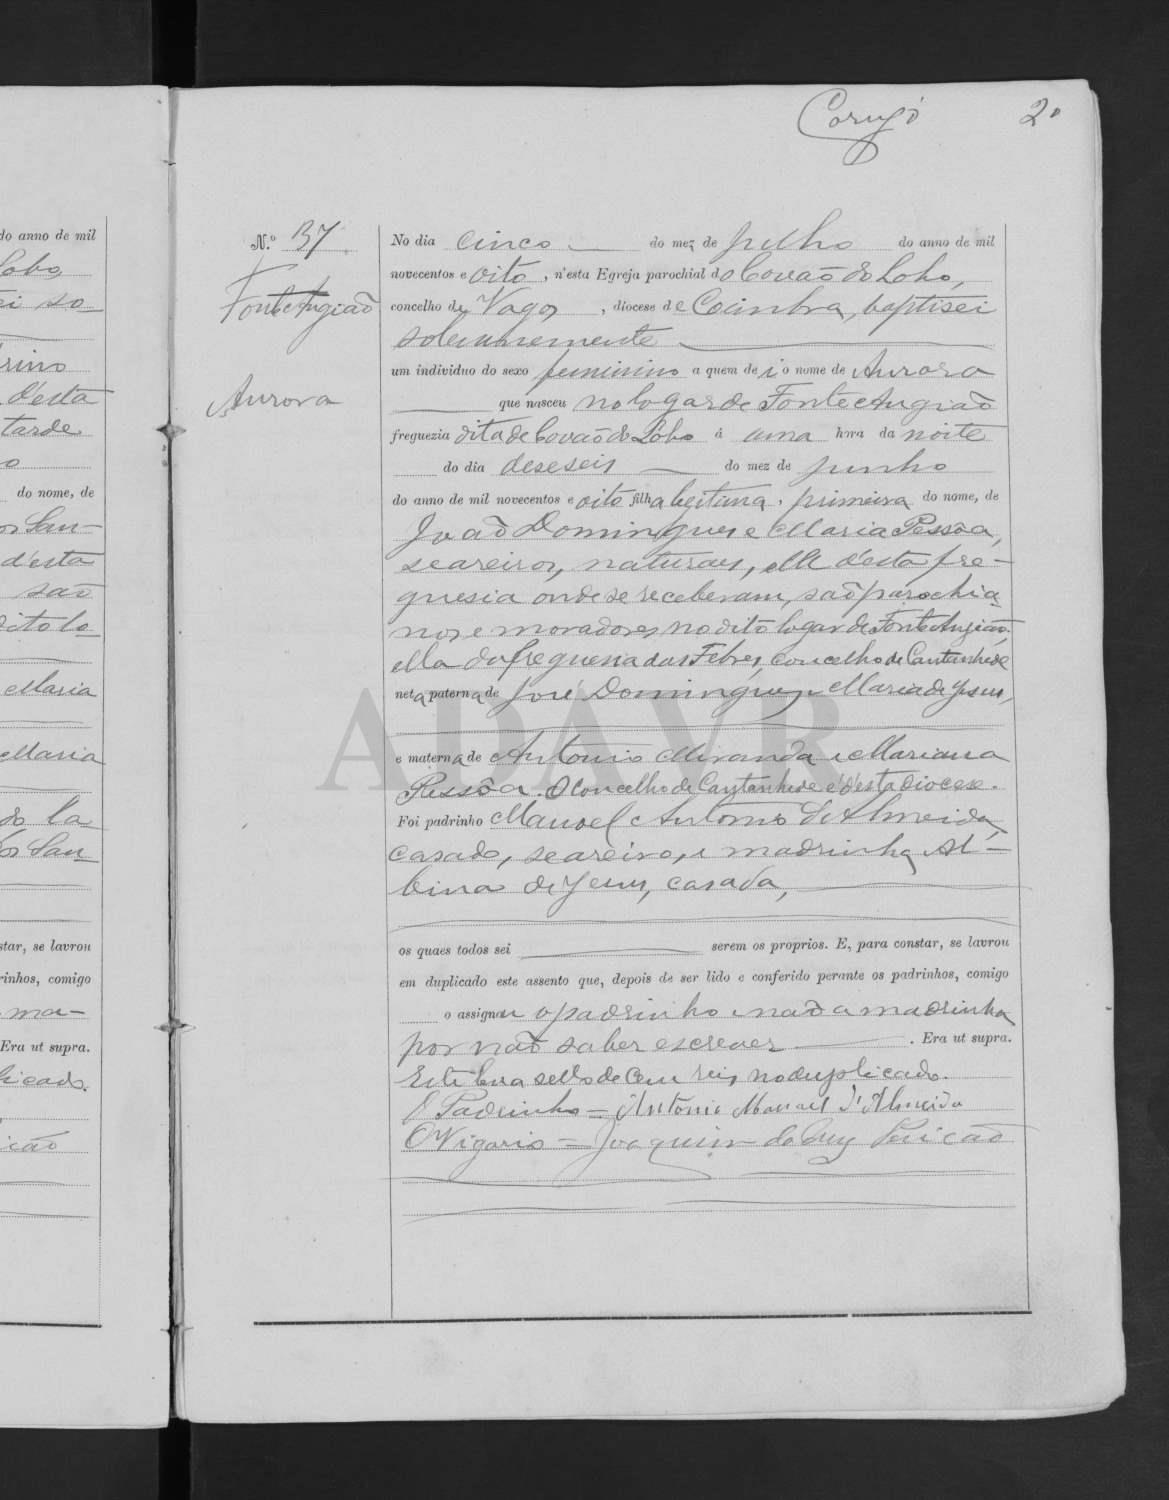 do anno de mil
Lobo,
ei so
rino
d'esta
tarde
o
do nome, de
d'esta
são
dito lo
Maria
Maria
do la
star, se lavrou
rinhos, comigo
ma-
Era ut supra.
licado.
icão
20
N.º 37
Fonte Angião
Aurora
No dia cinco do mez de julho do anno de mil
novecentos e oito, n'esta Egreja parochial do Covão do Lobo,
concelho de Vagos, diocese de Coimbra, baptisei
solemnemente
um individuo do sexo feminino a quem dei o nome de Aurora
que nasceu no logar de Fonte Angião
freguezia dita de Covão do Lobo á uma hora da noite
do dia deseseis do mez de junho
do anno de mil novecentos e oito filha legitima, primeira do nome, de
João Domingues e Maria Pessôa,
seareiros, naturaes, elle d'esta fre-
guesia onde se receberam, são parochia
nos e moradores no dito logar de Fonte Angião,
ella da freguesia das Febres, concelho de Cantanhede
neta paterna de José Domingues e Maria de Jesus,
e materna de Antonio Miranda e Mariana
Pessôa. O Concelho de Cantanhede é d'esta Diocese.
Foi padrinho Manoel Antonio d'Almeida,
casado, seareiro, e madrinha Al-
bina de Jesus, casada,
os quaes todos sei serem os proprios. E, para constar, se lavrou
em duplicado este assento que, depois de ser lido e conferido perante os padrinhos, comigo
o assignou o padrinho e não a madrinha
por não saber escrever. Era ut supra.
Este leva sello de cem reis no duplicado.
O Padrinho = Antonio Manoel d'Almeida
O Vigario = Joaquim da Cruz
ADAVR